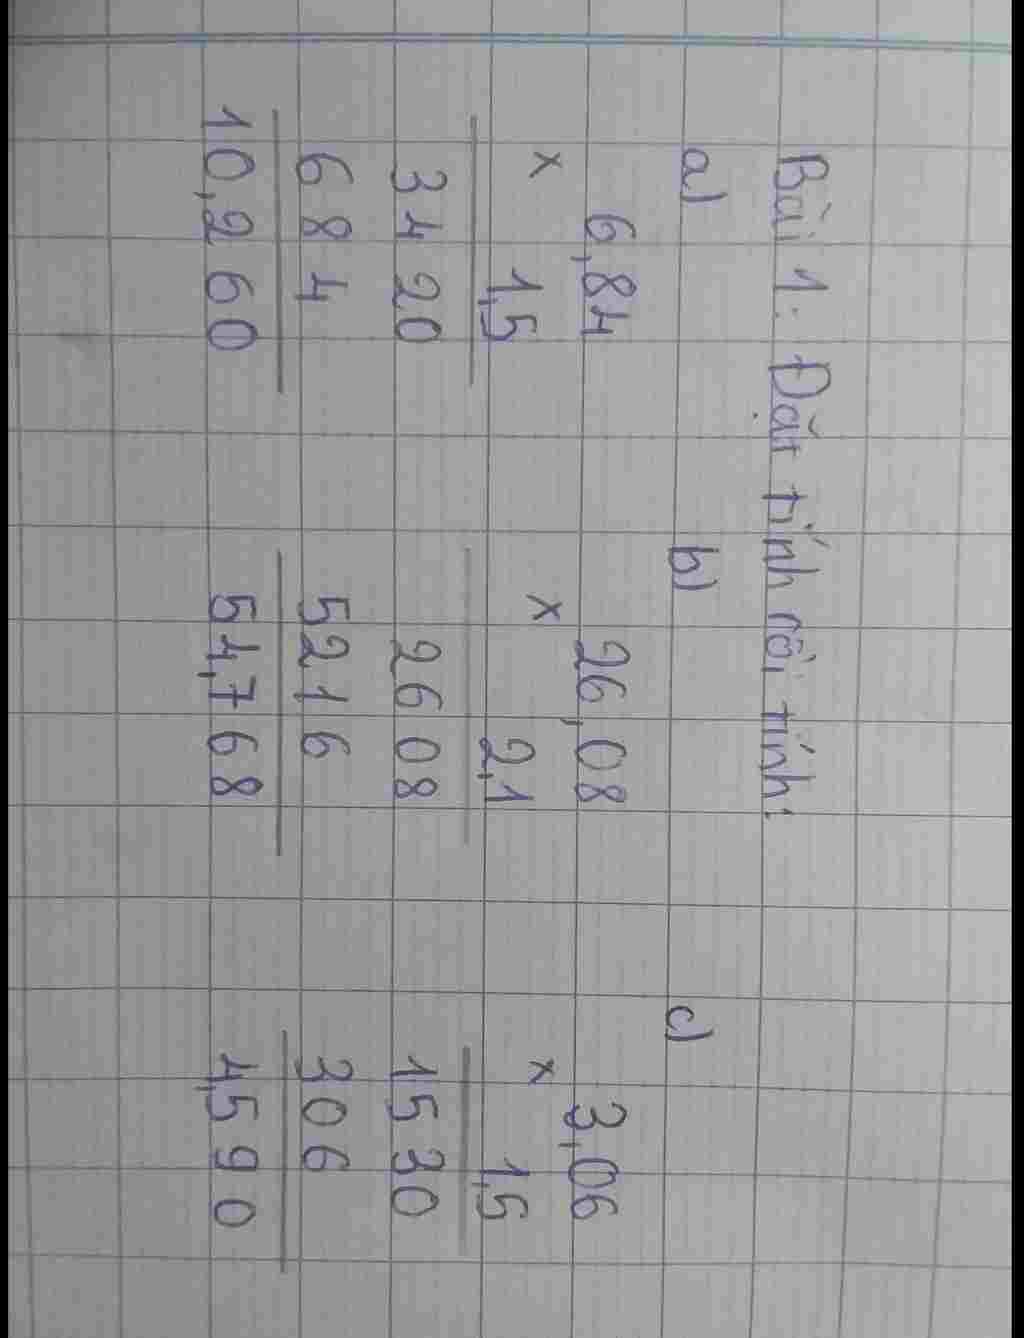 Bài 1: Đặt tính rồi tính:
a) b) c)
6,84 26,08 3,06
× × ×
1,5 2,1 1,5
3420 2608 1530
684 5216 306
10,260 54,768 4,590